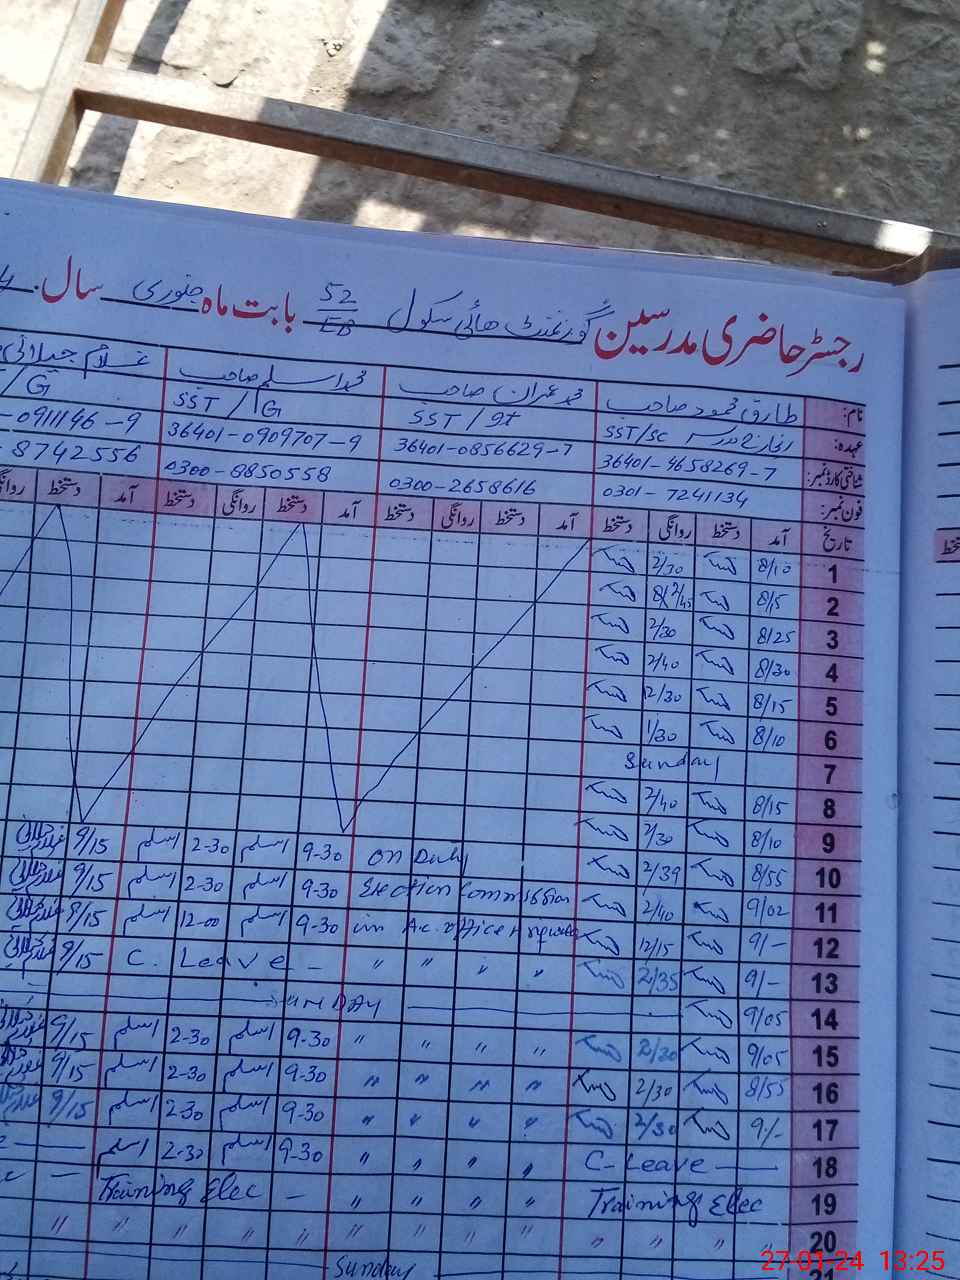 رجسٹر حاضری مدرسین گورنمنٹ ھائی سکول 52/EB بابت ماہ جنوری سال
نام: طارق محمود صاحب محمد عمران صاحب محمد اسلم صاحب غلام جیلانی
عہدہ: SST/SC SST/ SST/G /G
شناختی کارڈ نمبر: 36401-4658269-7 36401-0856629-7 36401-0909707-9 -0911146-9
فون نمبر: 0301-7241134 0300-2658616 0300-8850558 8742556
تاریخ آمد دستخط روانگی دستخط آمد دستخط روانگی دستخط آمد دستخط روانگی دستخط آمد دستخط
1 8/10 2/30
2 8/5 2/45
3 8/25 2/30
4 8/30 2/40
5 8/15 12/30
6 8/10 1/30
7 Sunday
8 8/15 2/40
9 8/10 2/30
10 8/55 2/39 On Duty 9-30 اسلم 2-30 اسلم 9/15
11 9/02 2/40 Election Commission 9-30 اسلم 2-30 اسلم 9/15
12 9/- 12/15 in A.C. office 9-30 اسلم 12-00 اسلم 9/15
13 9/- 2/35 " " " " C. Leave - 9/15
14 9/05 SUNDAY
15 9/05 2/30 " " " " 9-30 اسلم 2-30 اسلم 9/15
16 8/55 2/30 " " " " 9-30 اسلم 2-30 اسلم 9/15
17 9/- 2/30 " " " " 9-30 اسلم 2-30 اسلم 9/15
18 C-Leave " " " " 9-30 اسلم 2-30 اسلم
19 Training Elec " " " " Training Elec -
20 " " " " " " " " " " " " "
21 Sunday
27-01-24 13:25